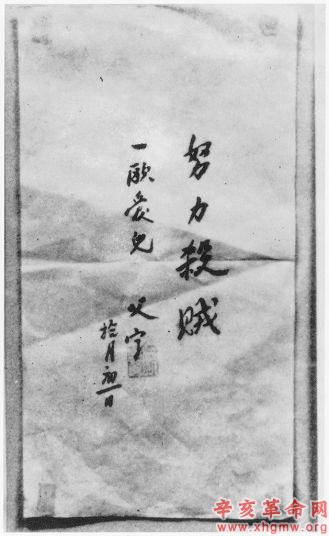 努力殺賊
一歐愛兒
父字
拾月初一日
辛亥革命网
www.xhgmw.org